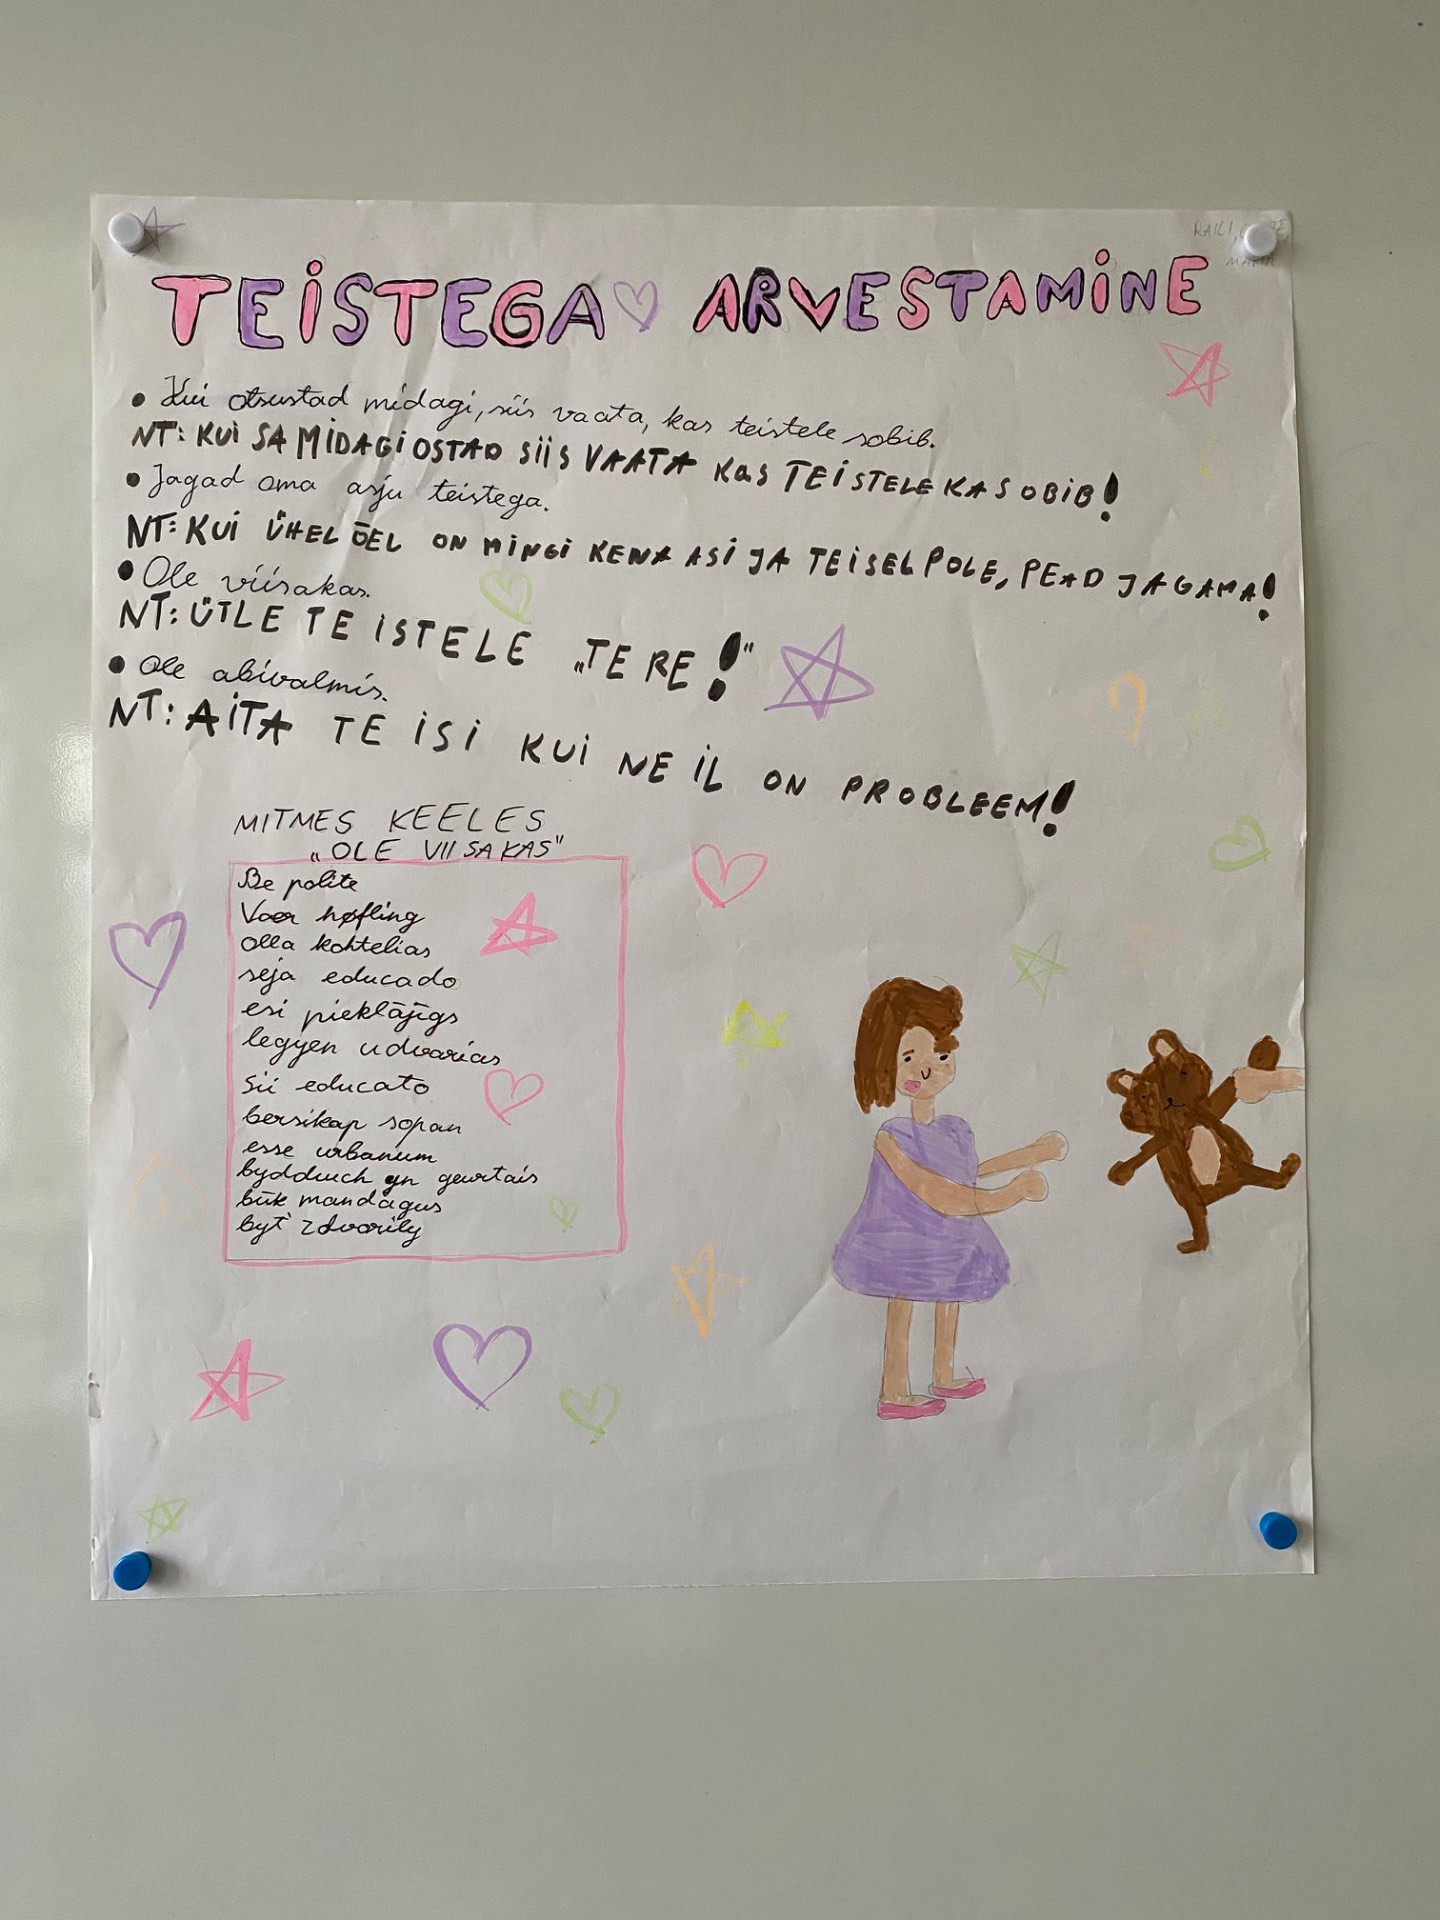 TEISTEGA ARVESTAMINE
• Kui otsustad midagi, siis vaata, kas teistele sobib.
NT: KUI SA MIDAGI OSTAD SIIS VAATA KAS TEISTELE KA SOBIB!
• Jagad oma asju teistega.
NT: KUI ÜHEL ÕEL ON MINGI KENA ASI JA TEISEL POLE, PEAD JAGAMA!
• Ole viisakas.
NT: ÜTLE TEISTELE „TERE!“
• Ole abivalmis.
NT: AITA TEISI KUI NEIL ON PROBLEEM!
MITMES KEELES
„OLE VIISAKAS“
Be polite
Vær høfling
olla kohtelias
seja educado
esi pieklājīgs
legyen udvarias
sii educato
bersikap sopan
esse urbanum
byddwch yn gwrtais
būk mandagus
byť zdvorily